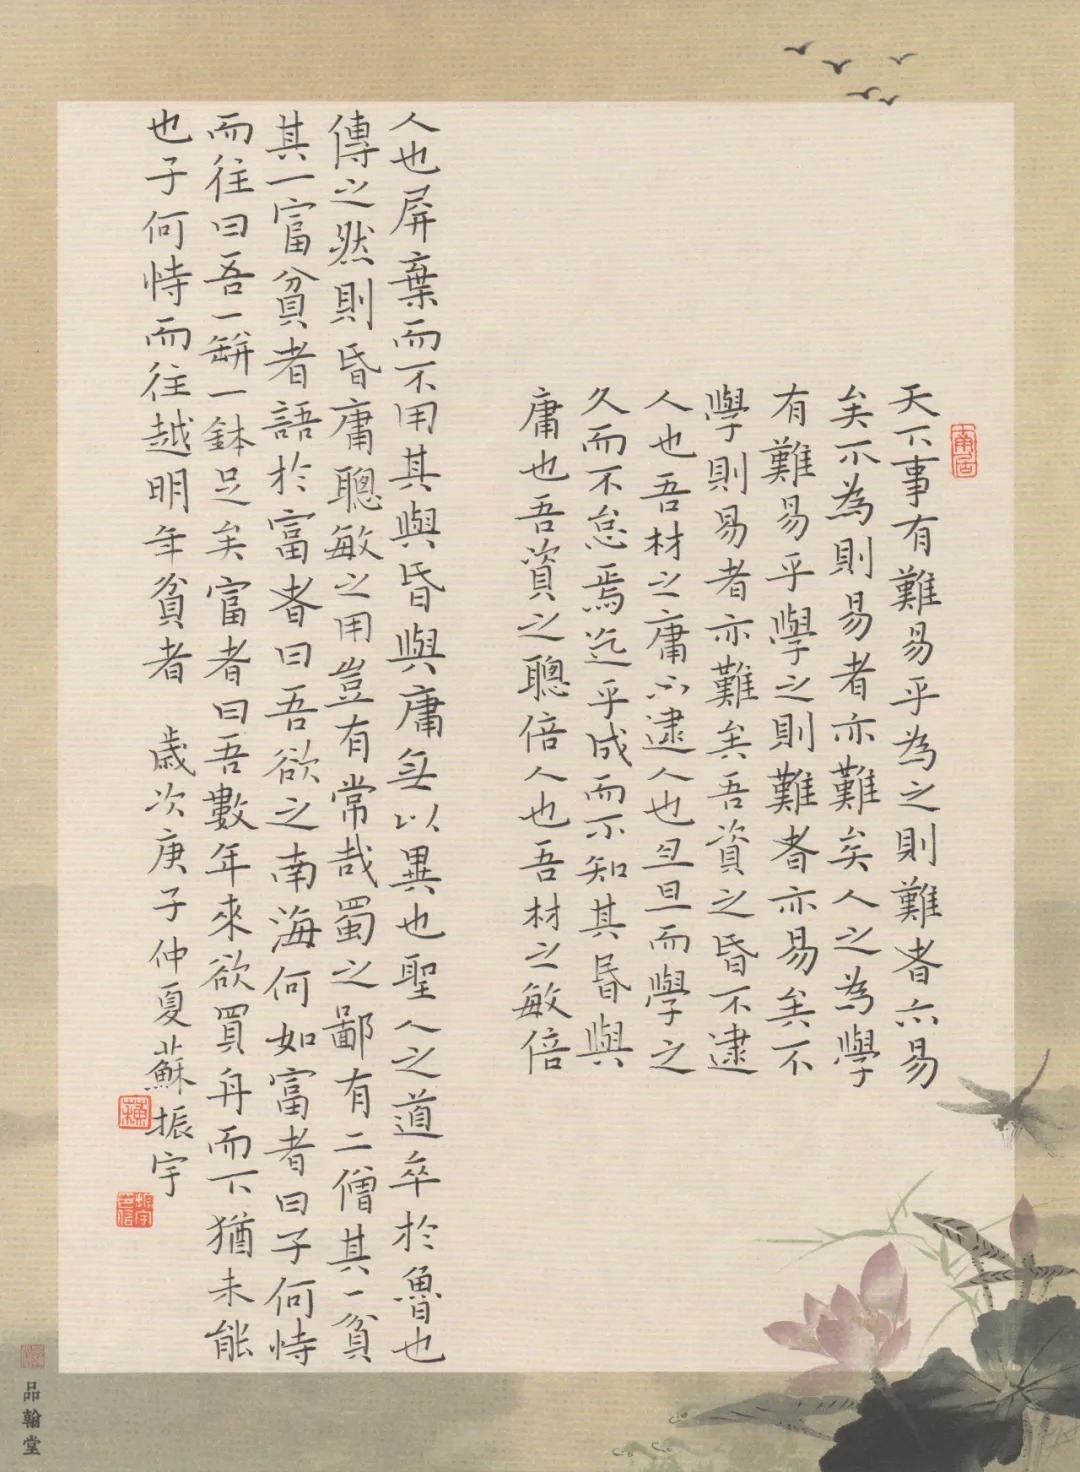 天下事有難易乎為之則難者亦易
矣不為則易者亦難矣人之為學
有難易乎學之則難者亦易矣不
學則易者亦難矣吾資之昏不逮
人也吾材之庸不逮人也旦旦而學之
久而不怠焉迄乎成而不知其昏與
庸也吾資之聰倍人也吾材之敏倍
人也屏棄而不用其與昏與庸無以異也聖人之道卒於魯也
傳之然則昏庸聰敏之用豈有常哉蜀之鄙有二僧其一貧
其一富貧者語於富者曰吾欲之南海何如富者曰子何恃
而往曰吾一缾一鉢足矣富者曰吾數年來欲買舟而下猶未能
也子何恃而往越明年貧者 歲次庚子仲夏蘇振宇
品翰堂